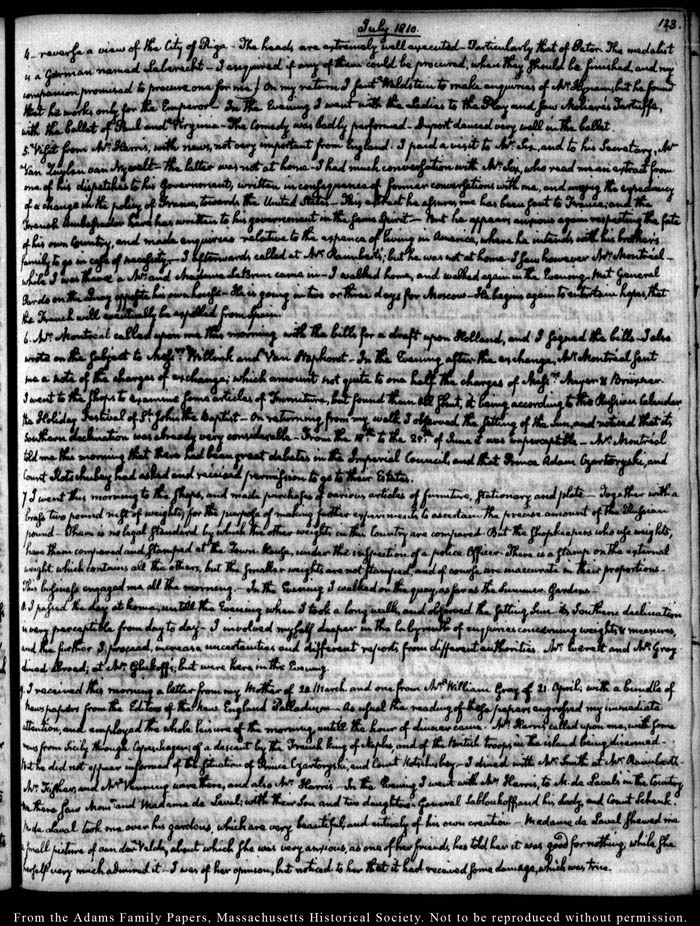 July 1810.
123.
4- reverse a view of the City of Riga - The heads are extremely well executed - Particularly that of Peter. The medalist
is a German named Leberecht - I enquired if any of them could be procured, when they should be finished, and my
companion promised to procure one for me. On my return I sent Waldstein to make enquiries of but he found
that he works only for the Emperor - In the Evening I went with the Ladies to the Play and saw Moliere's Tartuffe,
with the ballet of Paul and Virginia - The Comedy was badly performed - Duport danced very well in the ballet.
5. Visit from Mr. Harris, with news, not very important from England. I paid a visit to Mr. Six, and to his Secretary, Mr
Van Zuylen van Nyevelt - the latter was not at home - I had much conversation with Mr. Six, who read me an extract from
one of his dispatches to his Government, written in consequence of former conversations with me, and urging the expediency
of a change in the policy of France, towards the United States - This extract he assures me has been sent to France; and the
French Ambassador here has written to his government in the same Spirit - But he appears anxious again respecting the fate
of his own Country, and made enquiries relative to the expence of living in America, where he intends with his brothers
family to go in case of necessity. - I afterwards called at Mr. Raimbert's; but he was not at home - I saw however Mr. Montréal -
while I was there a Mr. and Madame LeBrun came in - I walked home, and walked again in the Evening. Met General
Pardo on the Quay opposite his own house - He is going in two or three days for Moscow - He begins again to entertain hopes, that
the French will eventually be expelled from Spain.
6. Mr. Montréal called upon me this morning with the bills for a draft upon Holland, and I signed the bills - I also
wrote on the subject to Messrs. Willink and Van Staphorst - In the Evening after the exchange, Mr. Montréal sent
me a note of the charges of exchange; which amount not quite to one half the charges of Messrs. Meyer & Bruxner.
I went to the Shops to examine some articles of Furniture, but found them all shut, it being according to the Russian Calendar
the Holiday Festival of St. John the Baptist - On returning from my walk I observed the setting of the Sun, and noticed that its
Southern declination was already very considerable - From the 18th to the 24th of June it was imperceptible - Mr. Montréal
told me this morning that there had been great debates in the Imperial Council, and that Prince Adam Czartoryski, and
Count Kotschubey had asked and received permission to go to their Estates.
7. I went this morning to the Shops, and made purchases of various articles of furniture, stationary and plate - Together with a
brass two pound nest of weights, for the purpose of making further experiments to ascertain the precise amount of the Russian
pound - There is no legal Standard by which the other weights in this Country are compared - But the Shopkeepers who use weights,
have them compared and stamped at the Town House, under the inspection of a police Officer - There is a stamp on the external
weight which contains all the others, but the smaller weights are not stamped, and of course are inaccurate in their proportions -
This business engaged me all the morning - In the Evening I walked on the quay, as far as the Summer Gardens.
8. I passed the day at home, untill the Evening when I took a long walk, and observed the setting Sun - its Southern declination
is very perceptible from day to day - I involved myself deeper in the labyrinth of enquiries concerning weights & measures,
and the further I proceed, increase uncertainties and different reports from different authorities. Mr. Everett and Mr. Gray
dined abroad; at Mr. but were here in the Evening.
9. I received this morning a letter from my Mother of 28 March and one from Mr. William Gray of 21. April; with a bundle of
Newspapers from the Editors of the New England Palladium - As usual the reading of these papers engrossed my immediate
attention, and employed the whole leisure of the morning, untill the hour of dinner came. Mr. Harris called upon me, with some
news from Sicily through Copenhagen; of a descent by the French king of Naples, and of the British troops in the island being disarmed -
But he did not appear informed of the situation of Prince Czartoryski, and Count Kotschubey - I dined with Mr. Smith at Mr. Raimbert's.
Mr. Fisher, and Mr. Venning were there, and also Mr. Harris - In the Evening I went with Mr. Harris, to M. de Laval's in the Country
We there saw Monsr. and Madame de Laval; with their Son and two daughters - General Sabloukoff and his Lady, and Count Schenk.
M. de Laval took me over his gardens, which are very beautiful, and entirely of his own creation - Madame de Laval shewed me
a small picture of van der Velde, about which she was very anxious, as one of her friends has told her it was good for nothing; while she
herself very much admired it - I was of her opinion, but noticed to her that it had received some damage, which was true.
From the Adams Family Papers, Massachusetts Historical Society. Not to be reproduced without permission.